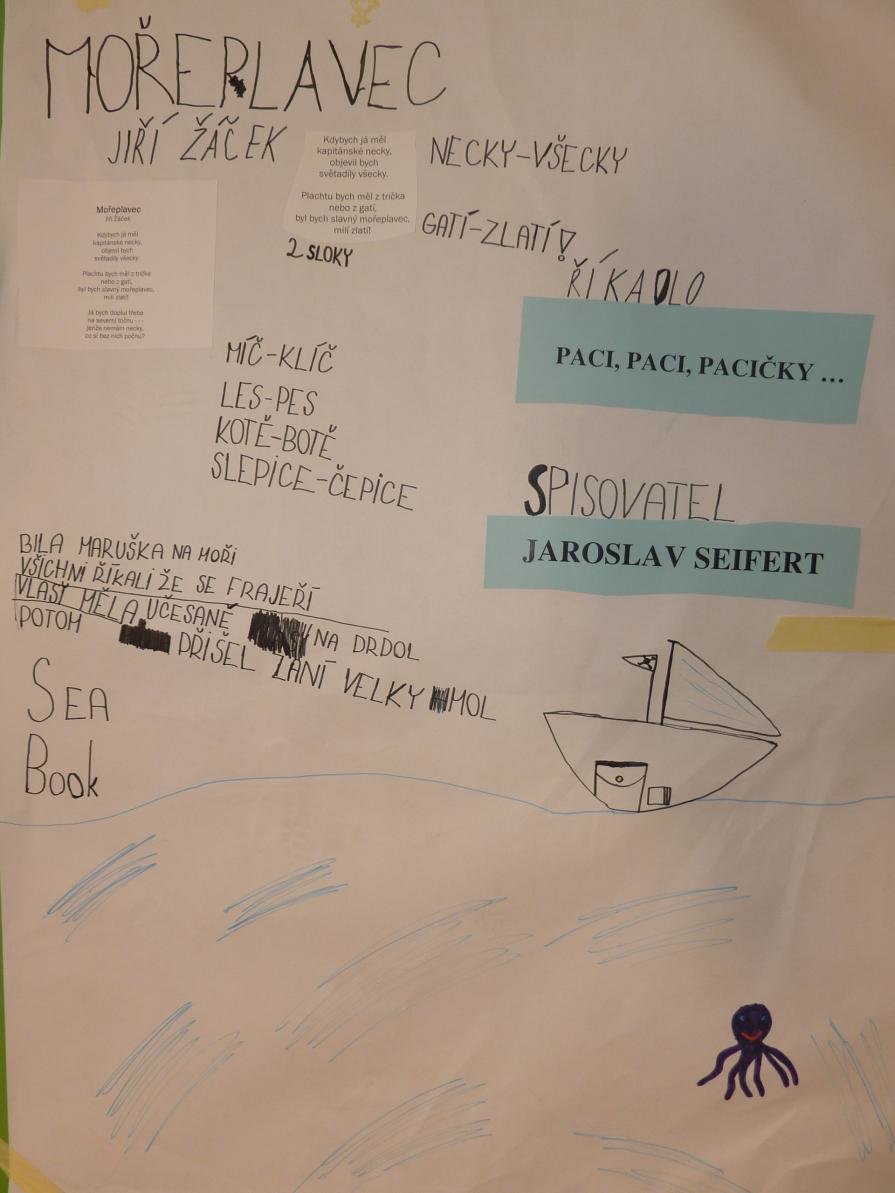 MOŘEPLAVEC
JIŘÍ ŽÁČEK
Kdybych já měl
kapitánské necky,
objevil bych
světadíly všecky.
Plachtu bych měl z trička
nebo z gatí,
byl bych slavný mořeplavec,
milí zlatí!
2 SLOKY
NECKY-VŠECKY
GATÍ-ZLATÍ!
Mořeplavec
Jiří Žáček
Kdybych já měl
kapitánské necky,
objevil bych
světadíly všecky.
Plachtu bych měl z trička
nebo z gatí,
byl bych slavný mořeplavec,
milí zlatí!
Já bych doplul třeba
na severní točnu - - -
jenže nemám necky,
co si bez nich počnu?
ŘÍKADLO
PACI, PACI, PACIČKY ...
MÍČ-KLÍČ
LES-PES
KOTĚ-BOTĚ
SLEPICE-ČEPICE
SPISOVATEL
JAROSLAV SEIFERT
BILA MARUŠKA NA MOŘI
VŠICHNI ŘÍKALI ŽE SE FRAJEŘÍ
VLASY MĚLA UČESANÉ NA DRDOL
POTOM PŘIŠEL ZANÍ VELKY MOL
SEA
Book